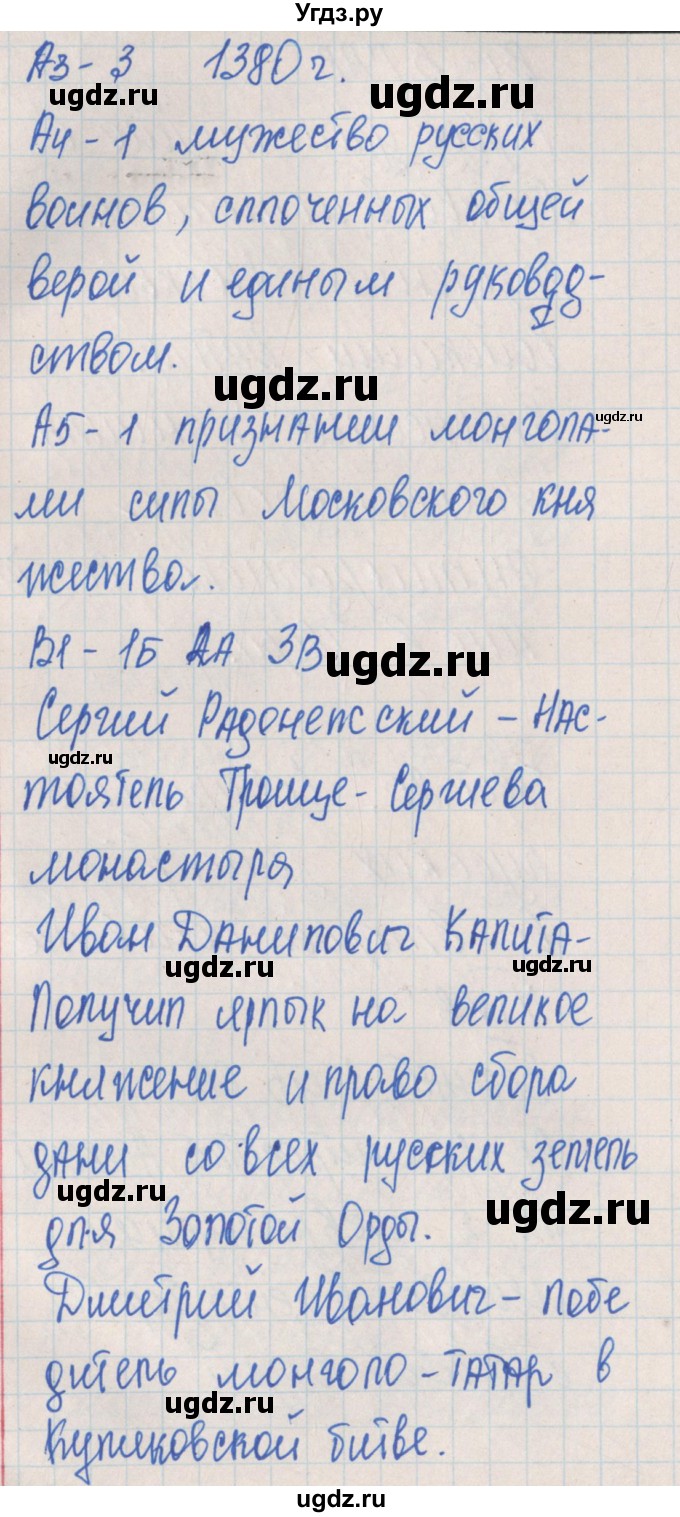 Угдз.ру
А3-3 1380 г.
ugdz.ru
ugdz.ru
А4-1 мужество русских
воинов, сплоченных общей
верой и единым руковод-
ством.
ugdz.ru
А5-1 признании монгола-
ugdz.ru
ми силы Московского кня
жества.
В1-1Б 2А 3В
ugdz.ru
Сергий Радонежский - нас-
ugdz.ru
тоятель Троице-Сергиева
монастыря
Иван Данилович Калита-
ugdz.ru
ugdz.ru
Получил ярлык на великое
княжение и право сбора
дани со всех русских земель
ugdz.ru
ugdz.ru
для Золотой Орды.
Дмитрий Иванович - побе
дитель монголо-татар в
ugdz.ru
Куликовской битве.
ugdz.ru